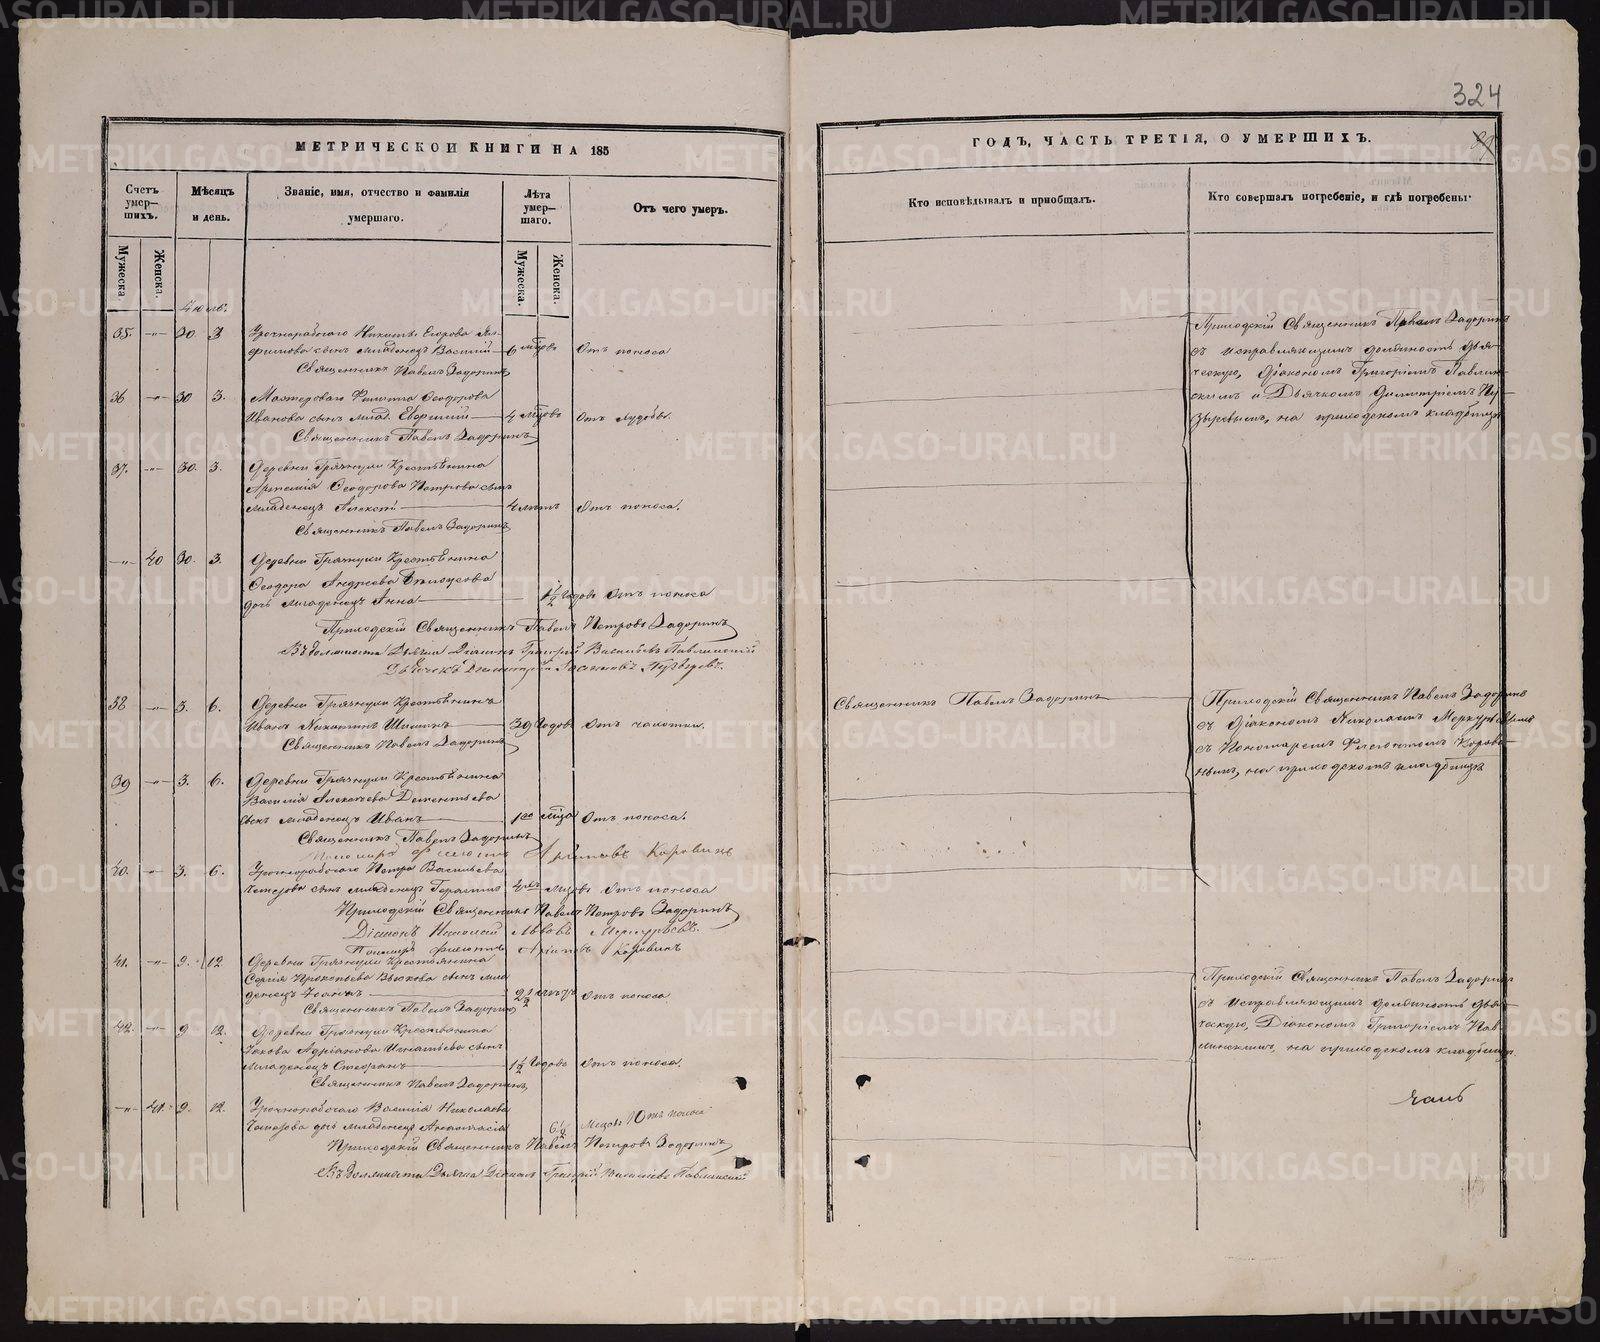 324
МЕТРИЧЕСКОИ КНИГИ НА 185
Счетъ умер-шихъ.
Мѣсяцъ и день.
Званіе, имя, отчество и фамилія умершаго.
Лѣта умер-шаго.
Отъ чего умеръ.
Мужеска.
Женска.
Мужеска.
Женска.
Іюль.
35. -"- 30. 3
Урочнорабочаго Никиты Егорова
сынъ младенецъ Василій — 6 мцовъ Отъ поноса
Священникъ Павелъ Задоринъ
36 -"- 30 3. Мастероваго Филиппа Ѳеодорова
Иванова сынъ млад. Евгеній — 4 мцовъ Отъ худобы.
Священникъ Павелъ Задоринъ
37. -"- 30. 3. Деревни Грязнухи Крестьянина
Артемія Ѳеодорова Петрова сынъ
младенецъ Алексій — 4 лѣтъ Отъ поноса.
Священникъ Павелъ Задоринъ
-"- 40 30. 3. Деревни Грязнухи Крестьянина
Ѳеодора Андреева Бѣлоусова
дочь младенецъ Анна — 1½ годовъ Отъ поноса
Приходскій Священникъ Павелъ Петровъ Задоринъ
Въ должности Дьячка Діаконъ Григорій Васильевъ Павлинскій
Дьячекъ Димитрій
38 -"- 3. 6. Деревни Грязнухи Крестьянинъ
Иванъ Никитинъ Шишинъ — 39 годовъ Отъ чахотки.
Священникъ Павелъ Задоринъ
39 -"- 3. 6. Деревни Грязнухи Крестьянина
Василія Алексѣева Дементьева
сынъ младенецъ Иванъ — 1го мца Отъ поноса.
Священникъ Павелъ Задоринъ
Пономарь Филетъ Архиповъ Коровинъ
40. -"- 3. 6. Урочнорабочаго Петра Васильева
сынъ младенецъ Герасимъ 4хъ мцовъ Отъ поноса
Приходскій Священникъ Павелъ Петровъ Задоринъ
Діаконъ Николай Львовъ Меркурьевъ.
Пономарь Филетъ Архиповъ Коровинъ
41. -"- 9. 12 Деревни Грязнухи Крестьянина
Сергія Прокопьева сынъ мла
денецъ Іоаннъ — 2½ лѣтъ Отъ поноса
Священникъ Павелъ Задоринъ
42. -"- 9 12. Деревни Грязнухи Крестьянина
Іакова Адріанова Игнатьева сынъ
младенецъ Стефанъ — 1½ годовъ Отъ поноса.
Священникъ Павелъ Задоринъ
-"- 41. 9. 12. Урочнорабочаго Василія Николаева
дочь младенецъ Анастасія 6 Мцовъ Отъ поноса
Приходскій Священникъ Павелъ Петровъ Задоринъ
Въ должности Дьячка Діаконъ Григорій Васильевъ Павлинскій
ГОДЪ, ЧАСТЬ ТРЕТІЯ, О УМЕРШИХЪ.
Кто исповѣдывалъ и приобщалъ.
Кто совершалъ погребеніе, и гдѣ погребены:
Приходскій Священникъ Павелъ Задоринъ
съ исправляющимъ должность дья-
ческую, Діакономъ Григоріемъ Павлин-
скимъ и Дьячкомъ Димитріемъ Пу-
зыревымъ, на приходскомъ кладбищѣ
Священникъ Павелъ Задоринъ
Приходскій Священникъ Павелъ Задоринъ
съ Діакономъ Николаемъ Меркурьевымъ
съ Пономаремъ Филетомъ Корови-
нымъ, на приходскомъ кладбищѣ
Приходскій Священникъ Павелъ Задоринъ
съ исправляющимъ должность дья-
ческую, Діакономъ Григоріемъ Пав-
линскимъ, на приходскомъ кладбищѣ.
METRIKI.GASO-URAL.RU